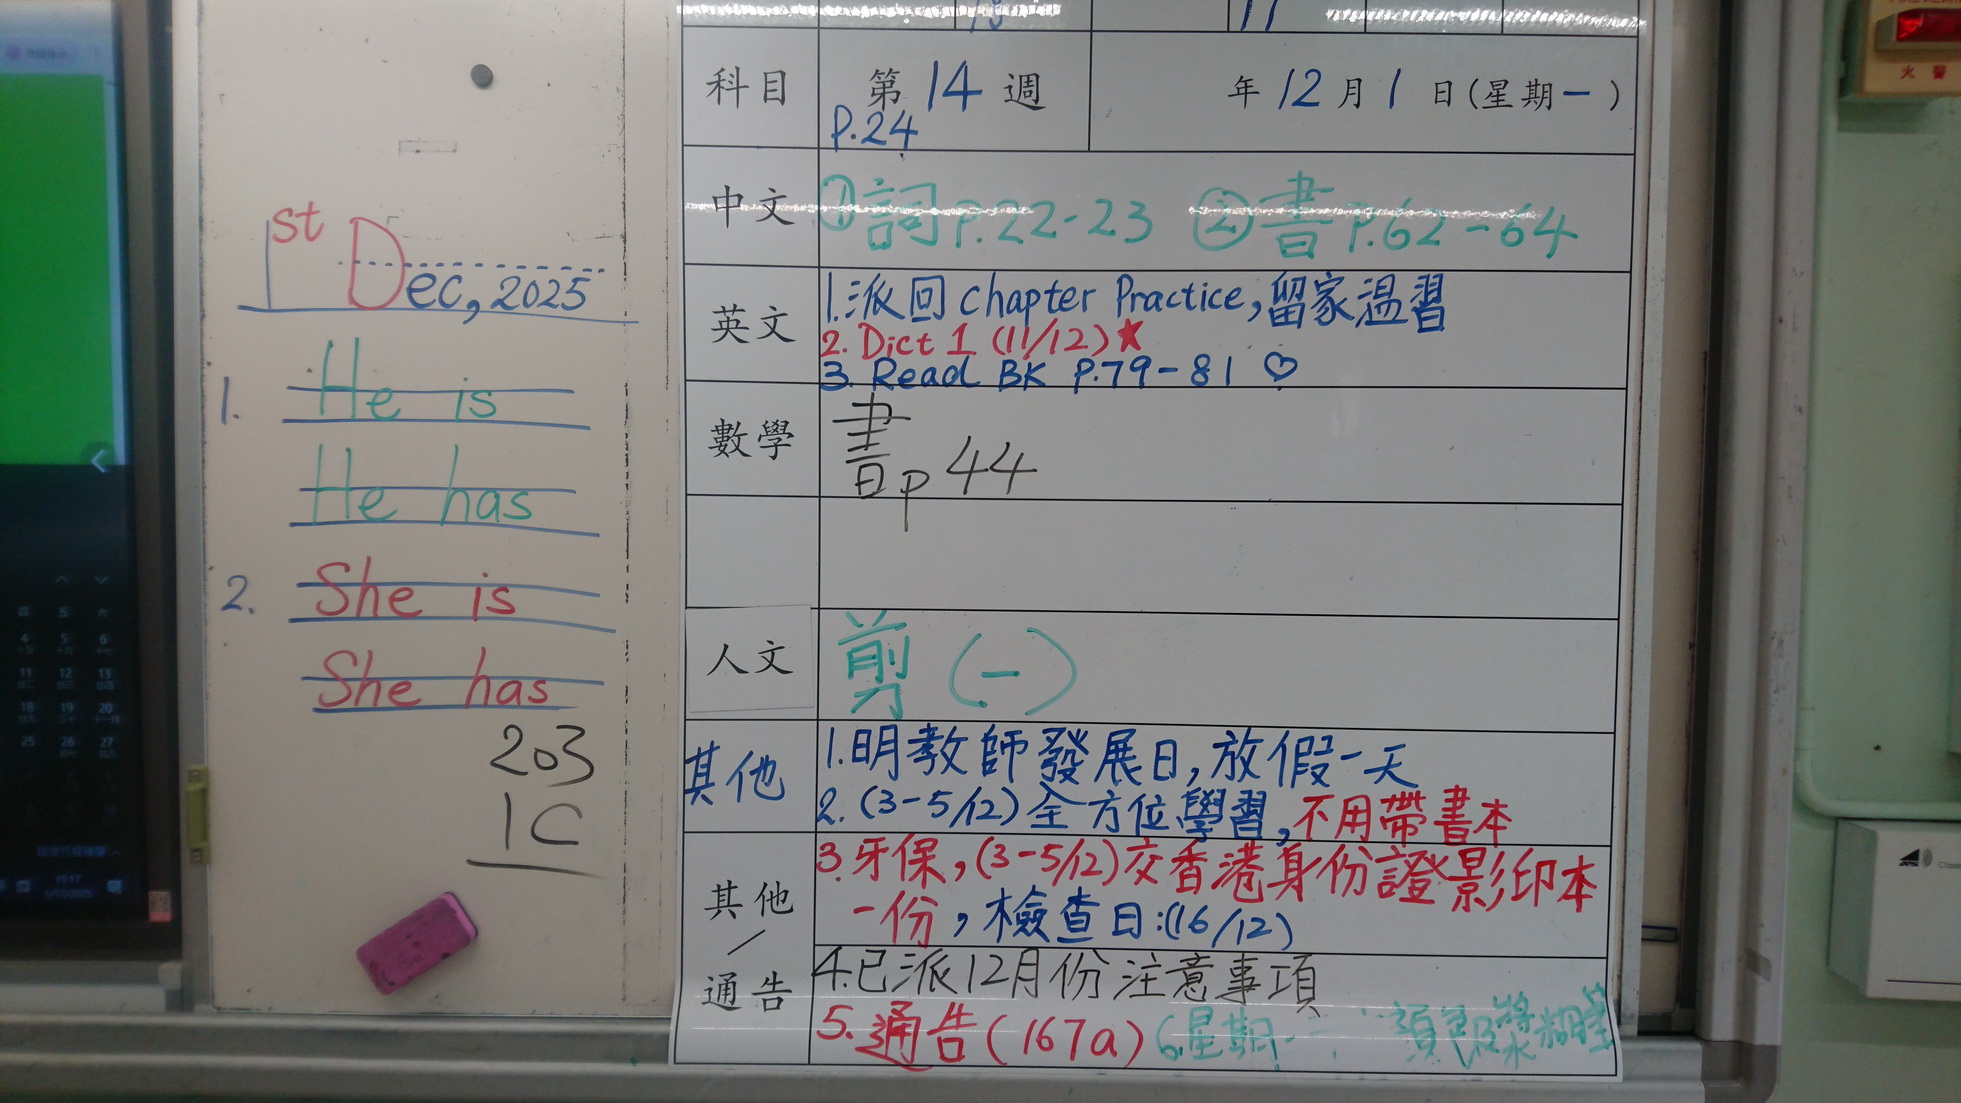 1st Dec, 2025
1. He is
He has
2. She is
She has
203
1C
科目 第 14 週 年 12 月 1 日 (星期一)
P.24
中文 ①詞 P.22-23 ②書 P.62-64
英文 1.派回 Chapter Practice, 留家溫習
2. Dict 1 (11/12) ★
3. Read BK P.79-81 ♡
數學 書 p 44
人文 剪 (一)
其他 1.明教師發展日, 放假一天
2. (3-5/12) 全方位學習, 不用帶書本
其他／通告 3.牙保, (3-5/12) 交香港身份證影印本
一份, 檢查日:(16/12)
4.已派12月份注意事項
5. 通告 (167a) 6.星期
火警
4 5 6
11 12 13
18 19 20
25 26 27
15:17
1/12/2025